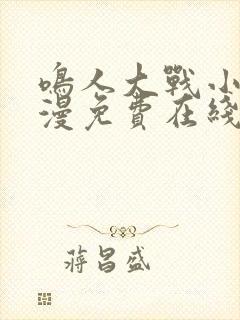 鳴人大戰小
漫免費在綫
蔣昌盛